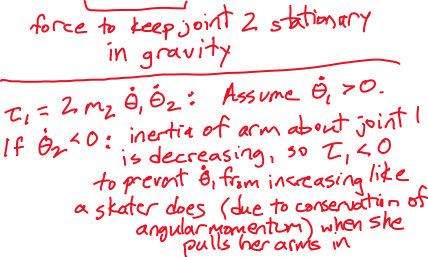 force to keep joint 2 stationary
in gravity
τ₁ = 2 m₂ θ̇₁ θ̇₂ : Assume θ̇₁ > 0.
If θ̇₂ < 0 : inertia of arm about joint 1
is decreasing, so τ₁ < 0
to prevent θ̇₁ from increasing like
a skater does (due to conservation of
angular momentum) when she
pulls her arms in